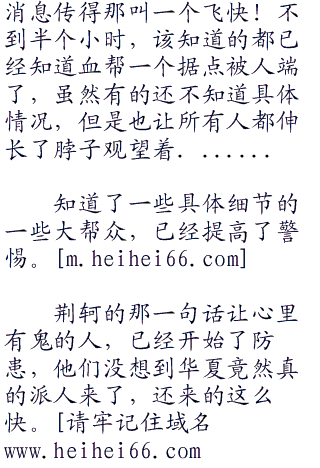 消息传得那叫一个飞快！不
到半个小时，该知道的都已
经知道血帮一个据点被人端
了，虽然有的还不知道具体
情况，但是也让所有人都伸
长了脖子观望着．......
知道了一些具体细节的
一些大帮众，已经提高了警
惕。[m.heihei66.com]
荆轲的那一句话让心里
有鬼的人，已经开始了防
患，他们没想到华夏竟然真
的派人来了，还来的这么
快。[请牢记住域名
www.heihei66.com